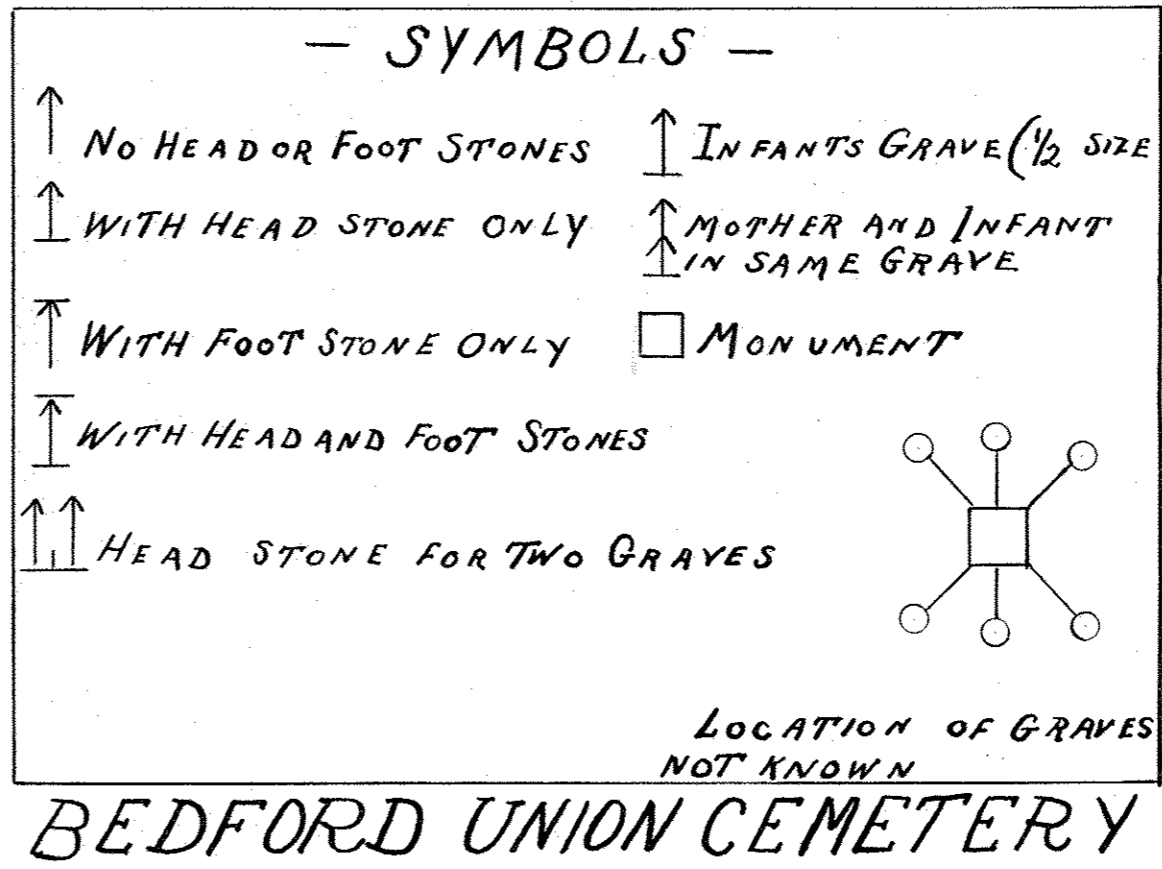 — SYMBOLS —
NO HEAD OR FOOT STONES
WITH HEAD STONE ONLY
WITH FOOT STONE ONLY
WITH HEAD AND FOOT STONES
HEAD STONE FOR TWO GRAVES
INFANTS GRAVE (1/2 SIZE
MOTHER AND INFANT
IN SAME GRAVE
MONUMENT
LOCATION OF GRAVES
NOT KNOWN
BEDFORD UNION CEMETERY